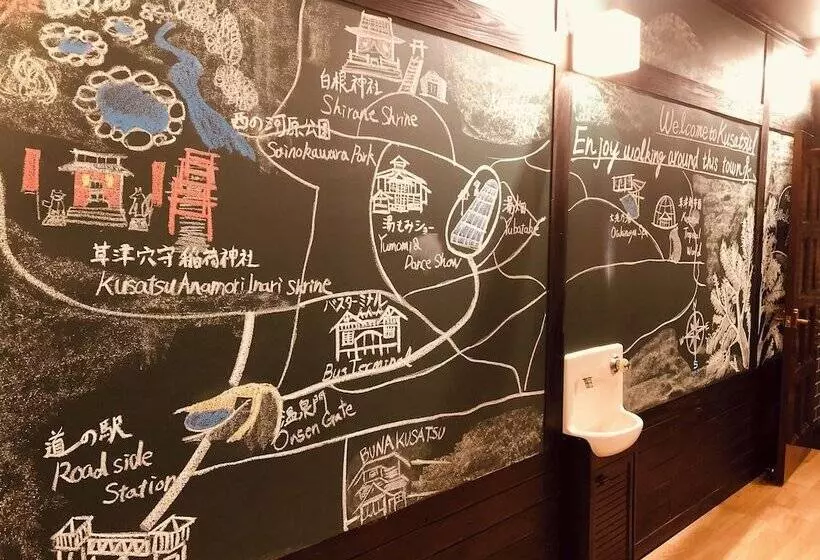 白根神社
Shirane Shrine
西の河原公園
Sainokawara Park
草津穴守稲荷神社
Kusatsu Anamori Inari Shrine
湯もみショー
Yumomi &
Dance Show
湯畑
Yubatake
バスターミナル
Bus Terminal
温泉門
Onsen Gate
道の駅
Road side
Station
BUNA KUSATSU
Welcome to Kusatsu!
Enjoy walking around this town
大滝乃湯
Tropical
S